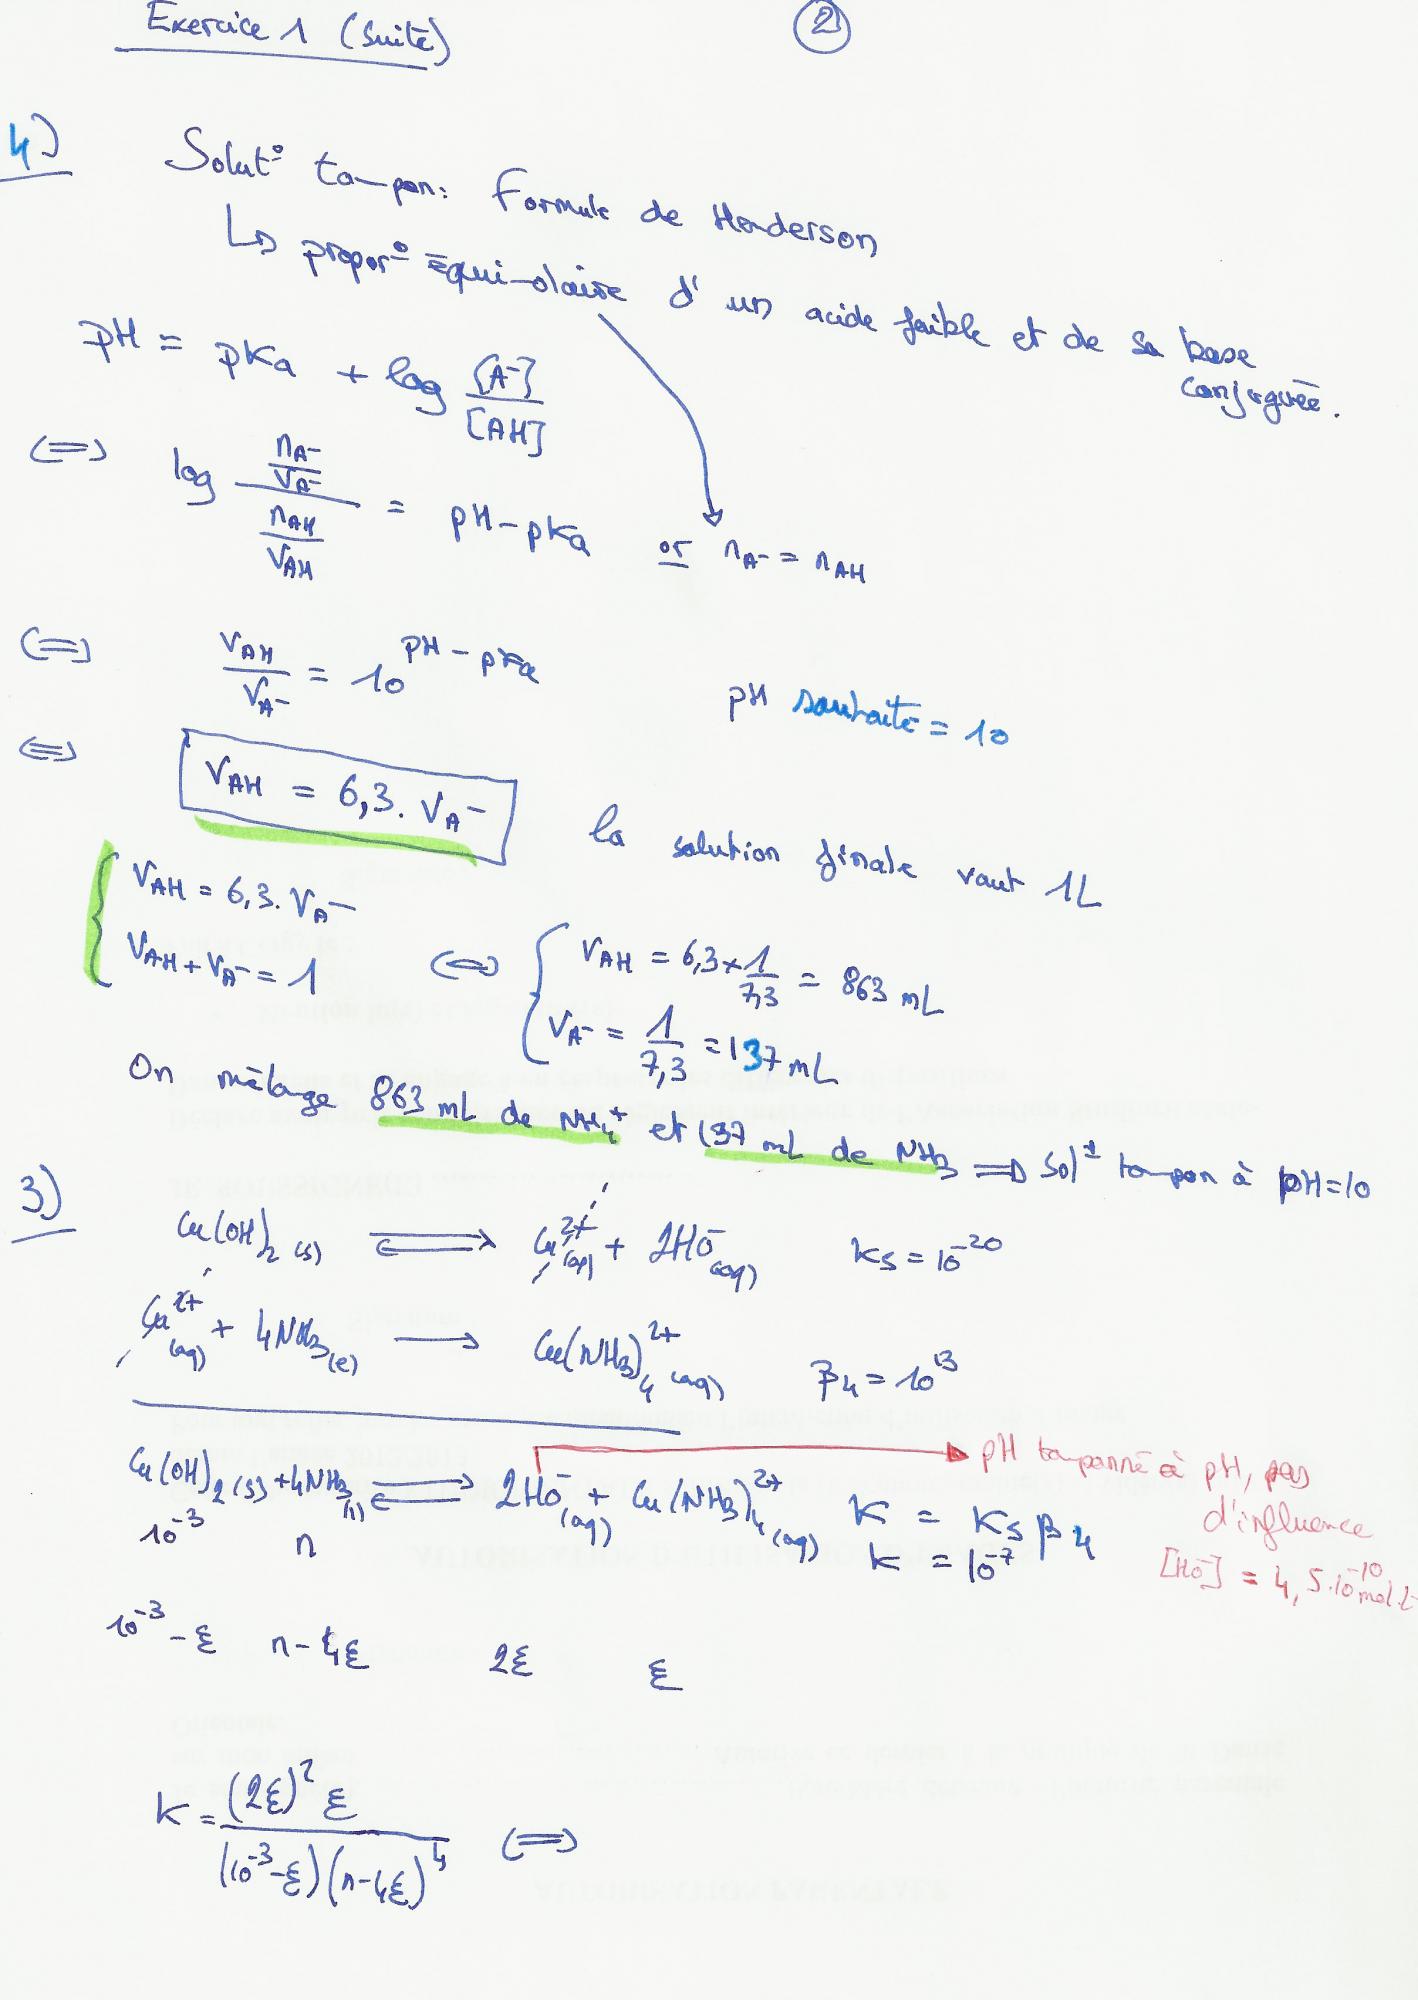 Exercice 1 (suite)
2
4)
Solut° tampon: Formule de Henderson
↳ propor° équimolaire d'un acide faible et de sa base
conjuguée.
pH = pKa + log [A-]/[AH]
(=) log (nA-/VA-)/(nAH/VAH) = pH - pKa or nA- = nAH
(=) VAH/VA- = 10^(pH - pKa)
pH souhaité = 10
(=) VAH = 6,3. VA-
la solution finale vaut 1L
{ VAH = 6,3. VA-
VAH + VA- = 1
(=) { VAH = 6,3 x 1/7,3 = 863 mL
VA- = 1/7,3 = 137 mL
On mélange 863 mL de NH4+ et 137 mL de NH3 => Sol° tampon à pH=10
3)
Cu(OH)2 (s) ⇌ Cu2+(aq) + 2HO-(aq) Ks = 10^-20
Cu2+(aq) + 4NH3(l) → Cu(NH3)4 2+(aq) β4 = 10^13
Cu(OH)2(s) + 4NH3(l) ⇌ 2HO-(aq) + Cu(NH3)4 2+(aq) K = Ks β4
pH tamponné à pH, pas
d'influence
[HO-] = 4,5.10^-10 mol.L
10^-3 n K = 10^-7
10^-3 - ξ n - 4ξ 2ξ ξ
K = (2ξ)^2 ξ / (10^-3 - ξ)(n - 4ξ)^4 (=)